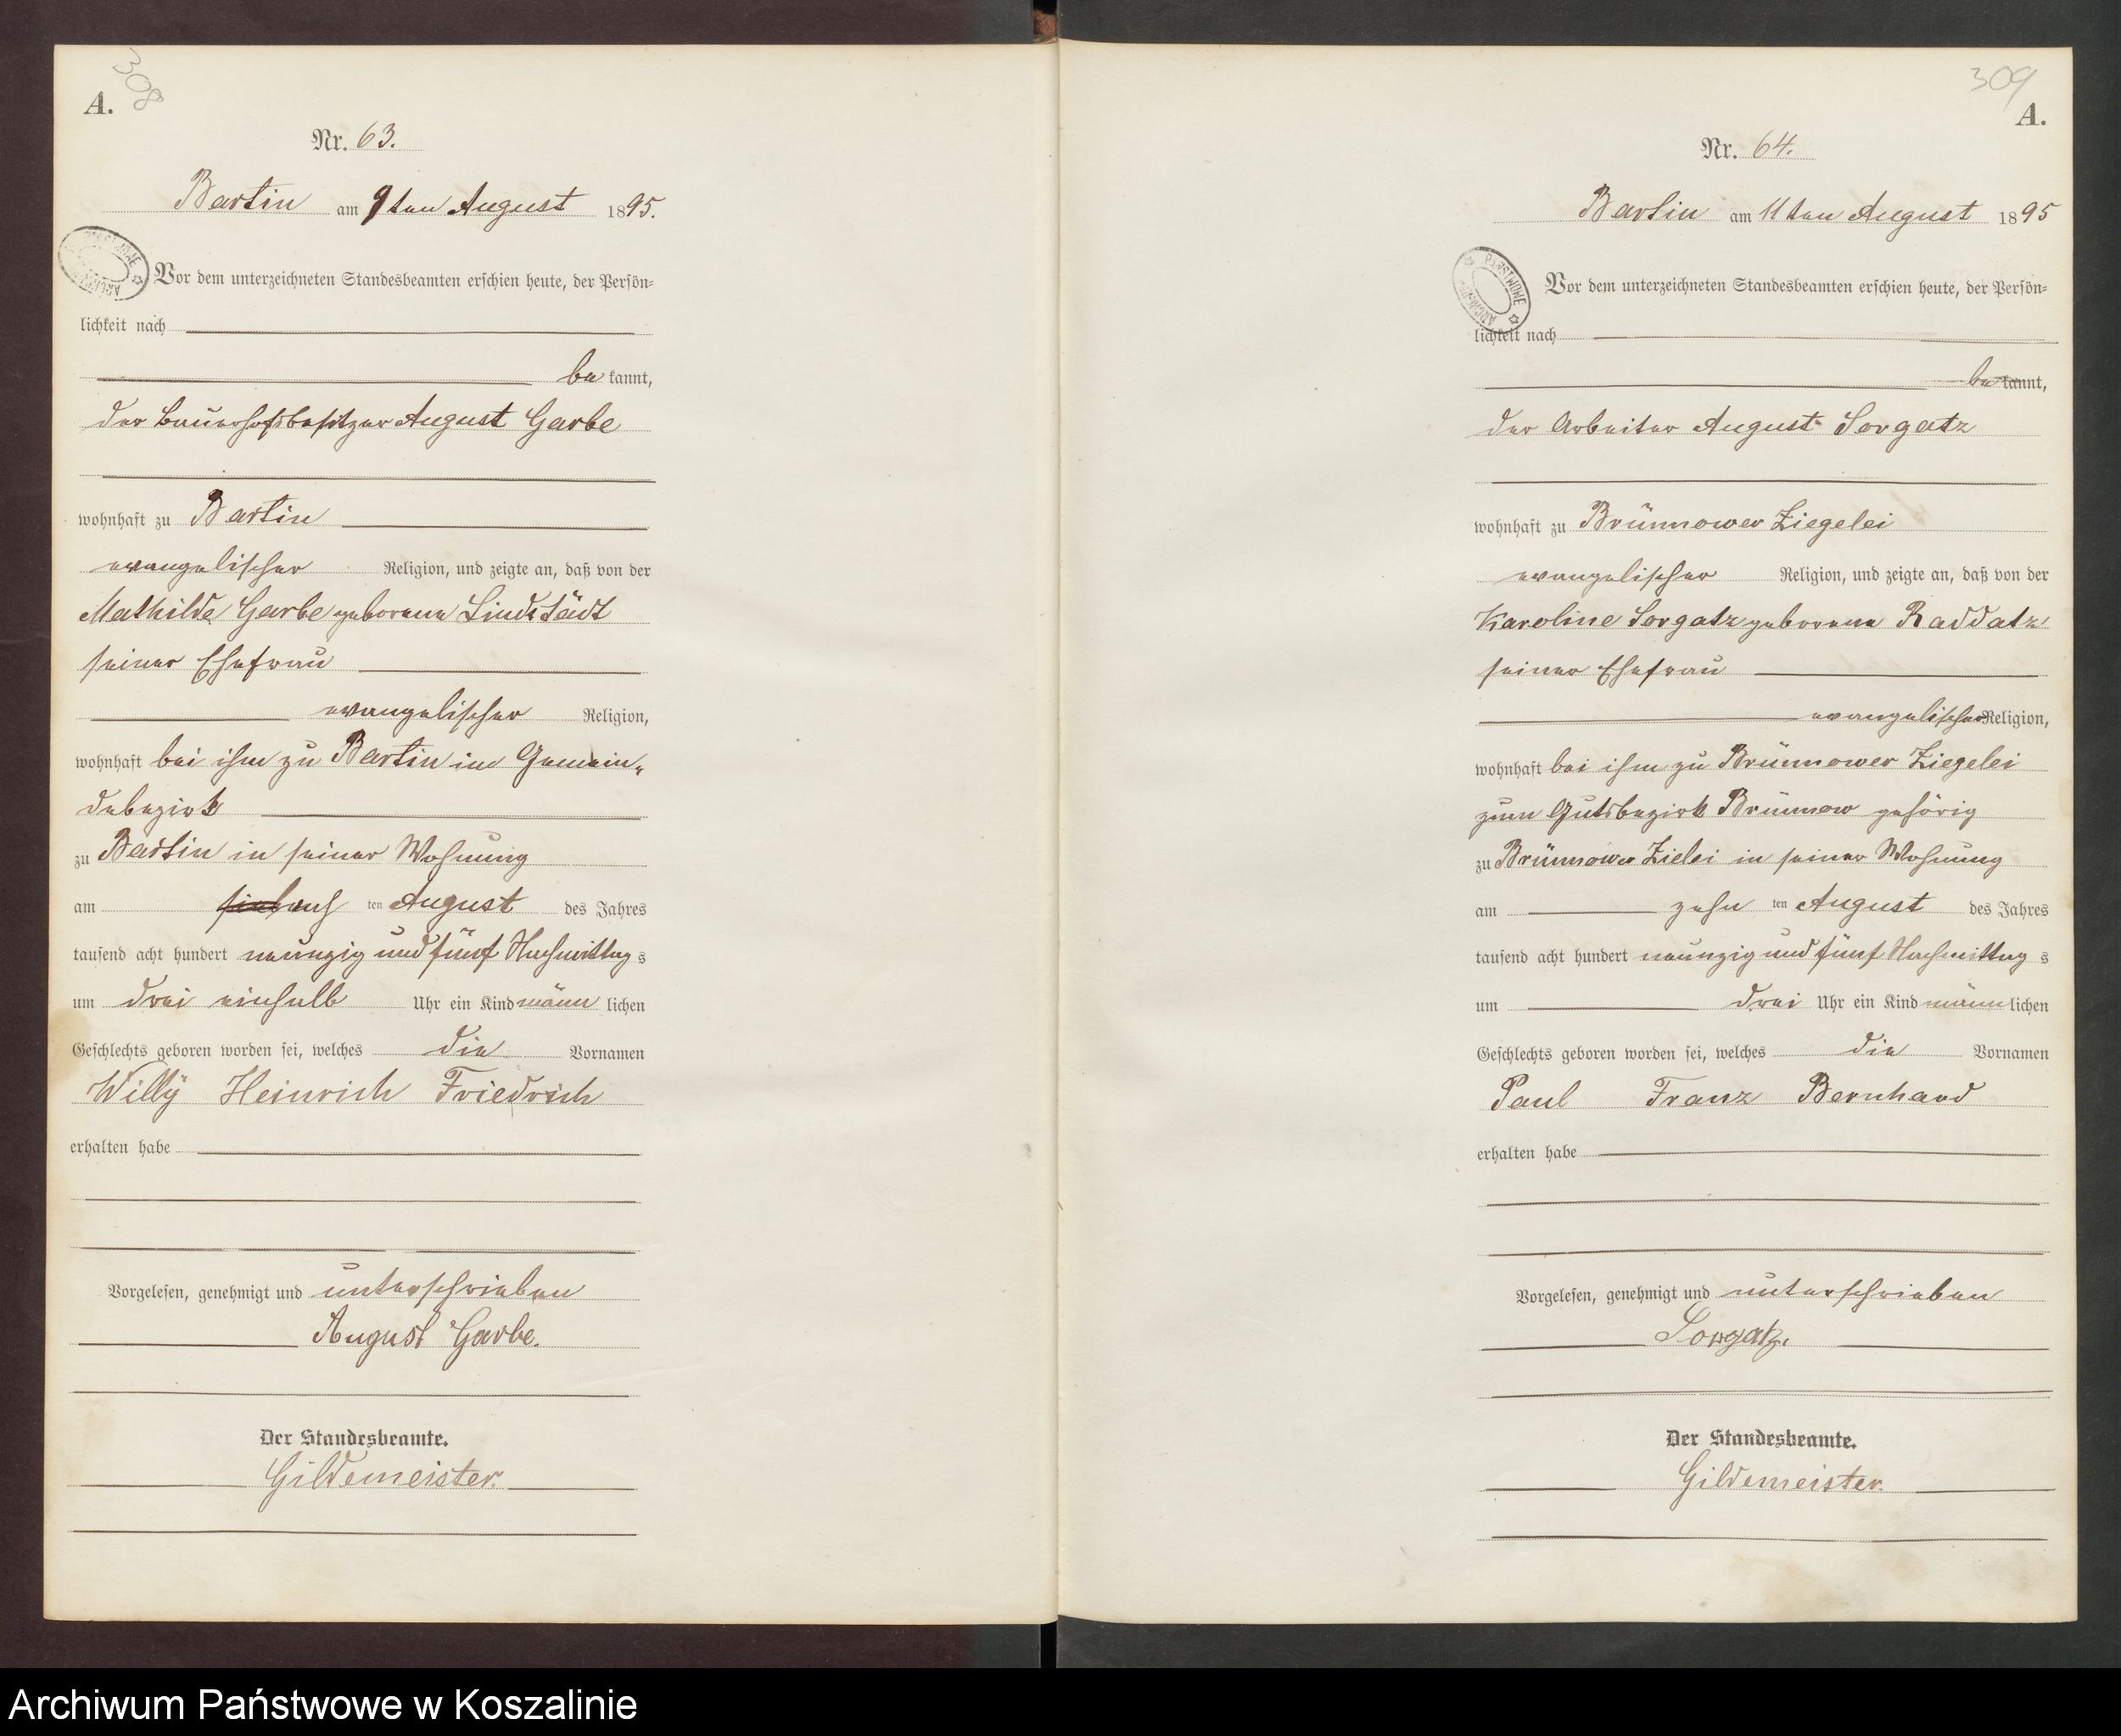 308
A.
Nr. 63.
Bartin am 9ten August 1895.
Vor dem unterzeichneten Standesbeamten erschien heute, der Persön=
lichkeit nach
bekannt,
der Bauerhofsbesitzer August Garbe
wohnhaft zu Bartin
evangelischer Religion, und zeigte an, daß von der
Mathilde Garbe geborene Lindstädt
seiner Ehefrau
evangelischer Religion,
wohnhaft bei ihm zu Bartin im Gemein-
debezirk
zu Bartin in seiner Wohnung
am sechs ten August des Jahres
tausend acht hundert neunzig und fünf Nachmittags
um drei einhalb Uhr ein Kind männlichen
Geschlechts geboren worden sei, welches die Vornamen
Willy Heinrich Friedrich
erhalten habe
Vorgelesen, genehmigt und unterschrieben
August Garbe.
Der Standesbeamte.
Gildemeister.
309
A.
Nr. 64.
Bartin am 11ten August 1895
Vor dem unterzeichneten Standesbeamten erschien heute, der Persön=
lichkeit nach
bekannt,
der Arbeiter August Sorgatz
wohnhaft zu Brünnower Ziegelei
evangelischer Religion, und zeigte an, daß von der
Karoline Sorgatz geborene Raddatz
seiner Ehefrau
evangelischer Religion,
wohnhaft bei ihm zu Brünnower Ziegelei
zum Gutsbezirk Brünnow gehörig
zu Brünnower Zielei in seiner Wohnung
am zehn ten August des Jahres
tausend acht hundert neunzig und fünf Nachmittags
um drei Uhr ein Kind männlichen
Geschlechts geboren worden sei, welches die Vornamen
Paul Franz Bernhard
erhalten habe
Vorgelesen, genehmigt und unterschrieben
Sorgatz.
Der Standesbeamte.
Gildemeister.
Archiwum Państwowe w Koszalinie